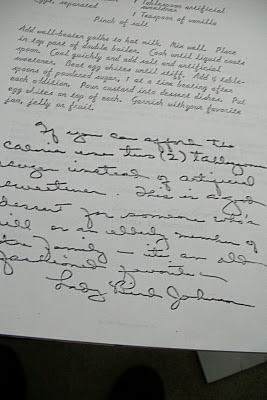 Eggs, separated
1 Tablespoon artificial
sweetener
1 Teaspoon of vanilla
Pinch of salt
Add well-beaten yolks to hot milk. Mix well. Place
in top part of double boiler. Cook until liquid coats
spoon. Cool quickly and add salt and artificial
sweetener. Beat egg whites until stiff. Add 4 table-
spoons of powdered sugar, 1 at a time beating after
each addition. Pour custard into dessert dishes. Put
egg whites on top of each. Garnish with your favorite
jam, jelly or fruit.
If you can afford the
calories use two (2) tablespoon
sugar instead of artificial
sweetener. This is a good
dessert for someone who's
ill or an elderly member of
the family - it's an old
fashioned favorite -
Lady Bird Johnson